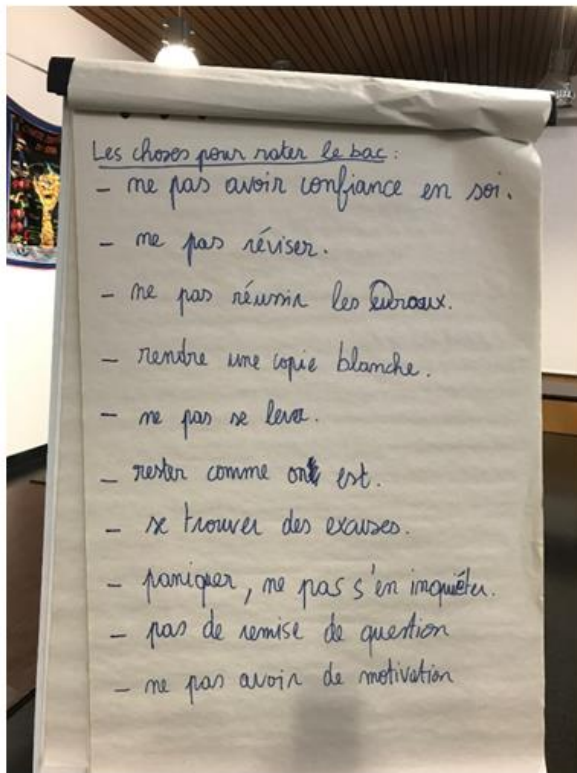 Les choses pour rater le bac :
- ne pas avoir confiance en soi.
- ne pas réviser.
- ne pas réussir les
- rendre une copie blanche.
- ne pas se lever.
- rester comme on est.
- se trouver des excuses.
- paniquer, ne pas s'en inquiéter.
- pas de remise de question
- ne pas avoir de motivation